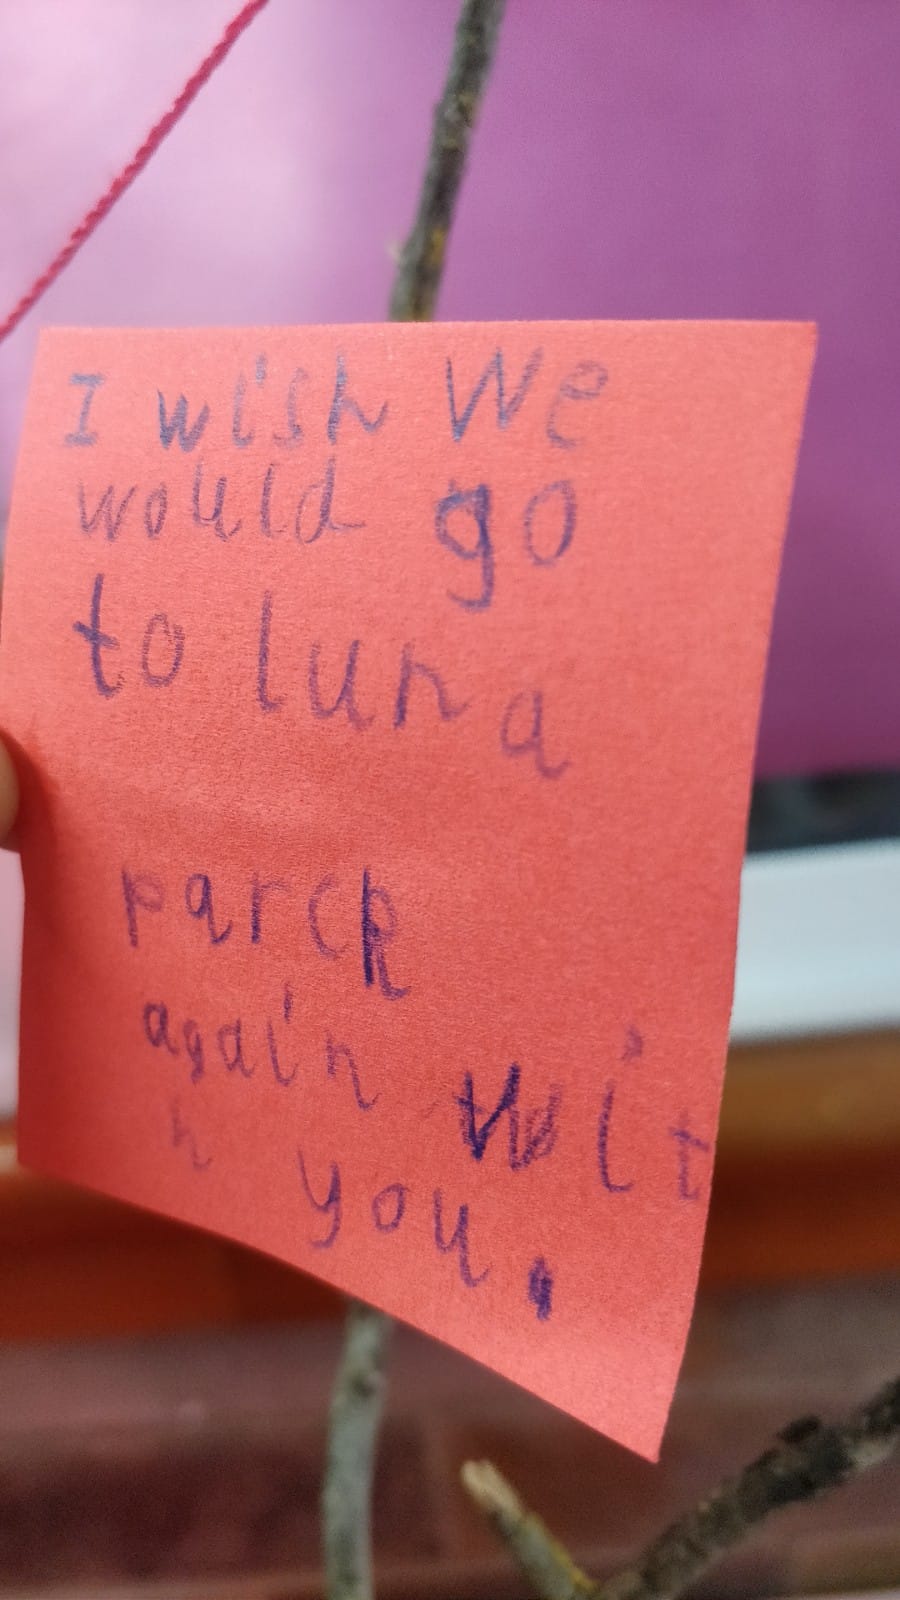 I wish We
would go
to luna
parck
again wit
h you.